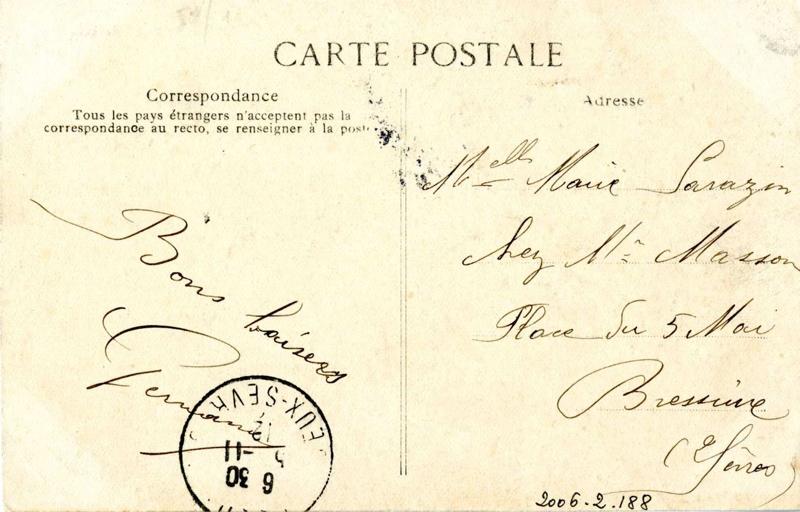 CARTE POSTALE
Correspondance
Tous les pays étrangers n'acceptent pas la
correspondance au recto, se renseigner à la poste
Bons baisers
Adresse
Melle Marie Sarazin
Chez Mr Masson
Place du 5 Mai
Bressuire
2 Sèvres
EUX-SÈVR
5 -11
6 30
2006.2.188